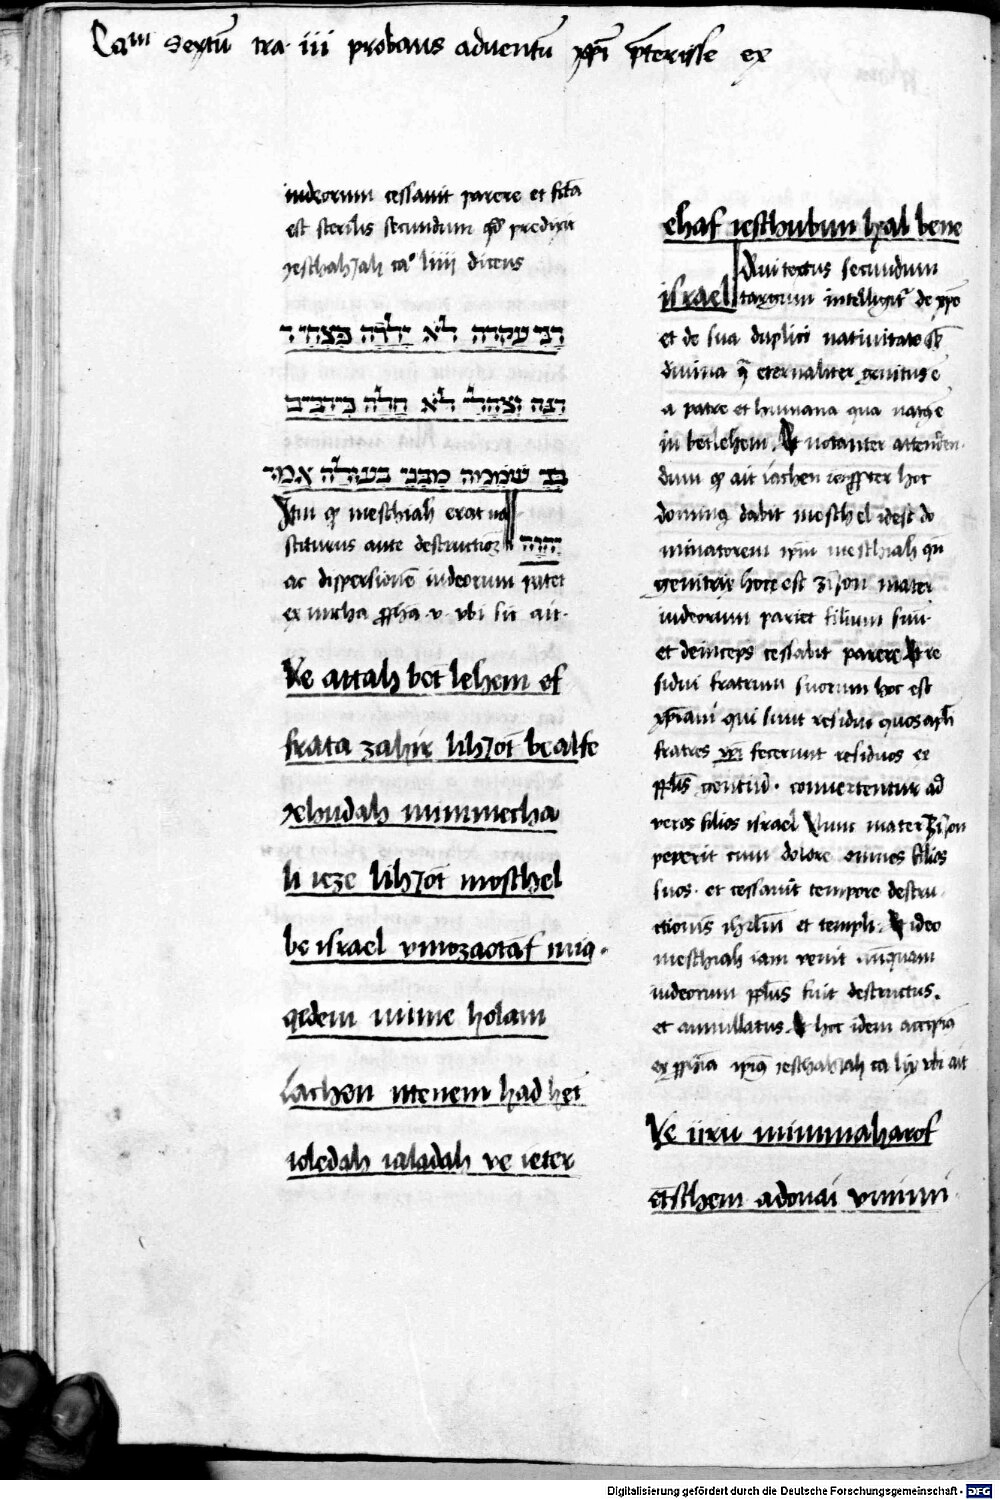 Cam sextū tra. iii probans adventū xp̄i p̄terisse ex
iudeorum cessavit parere et fc̄a
est sterilis secundum qd̄ predixit
yeschahJah ca° liiii dicens
רני עקרה לא ילדה פצחי ר
רנה וצהלי לא חלה כי רבים
בני שוממה מבני בעולה אמר
יהוה
Itm qƺ meschiah erat na
sciturus ante destructioƺ
ac dispersionē iudeorum patet
ex micha ꝓpha v. vbi sic ait.
Ve attah bet lehem ef
frata zahir lihJot be alfe
yehudah mimmecha
li ieze lihJot moschel
be israel vmozaotaf miq
qedem mime holam
Lachen itenem had het
ioledah ialadah ve ieter
ehaf ieschubun hal bene
israel
Qui textus secundum
targum intelligit' de xp̄o
et de sua duplici nativitate sƺ
divina q̄ eternaliter genitus ē
a patre et humana qua natꝰ ē
in betlehem. Et notanter attenden
dum qƺ ait lachen id ꝓpter hoc
dominꝰ dabit moschel idest do
minatorem ip̄m meschiah qn̄
genitrix hoc est ziJon mater
iudeorum pariet filium suū.
et deinceps cessabit parere Et re
sidui fratrum suorum hoc est
xp̄iani qui sunt residui quos apl̄i
fratres xp̄i fecerunt residuos ex
ppl̄is gentiū. convertentur ad
veros filios israel Nunc mater ziJon
peperit cum dolore omnes filios
suos. et cessavit tempore destru
ctionis ihrl̄m et templi. Et ideo
meschiah iam venit. nūquam
iudeorum ppl̄us fuit destructus.
et annullatus. Et hoc idem accipiꝰ
ex ꝓphīa ipiꝰ ieschahJah ca lix vbi ait
Ve iiru mimmaharof
etschem adonai vmimi
Digitalisierung gefördert durch die Deutsche Forschungsgemeinschaft - DFG